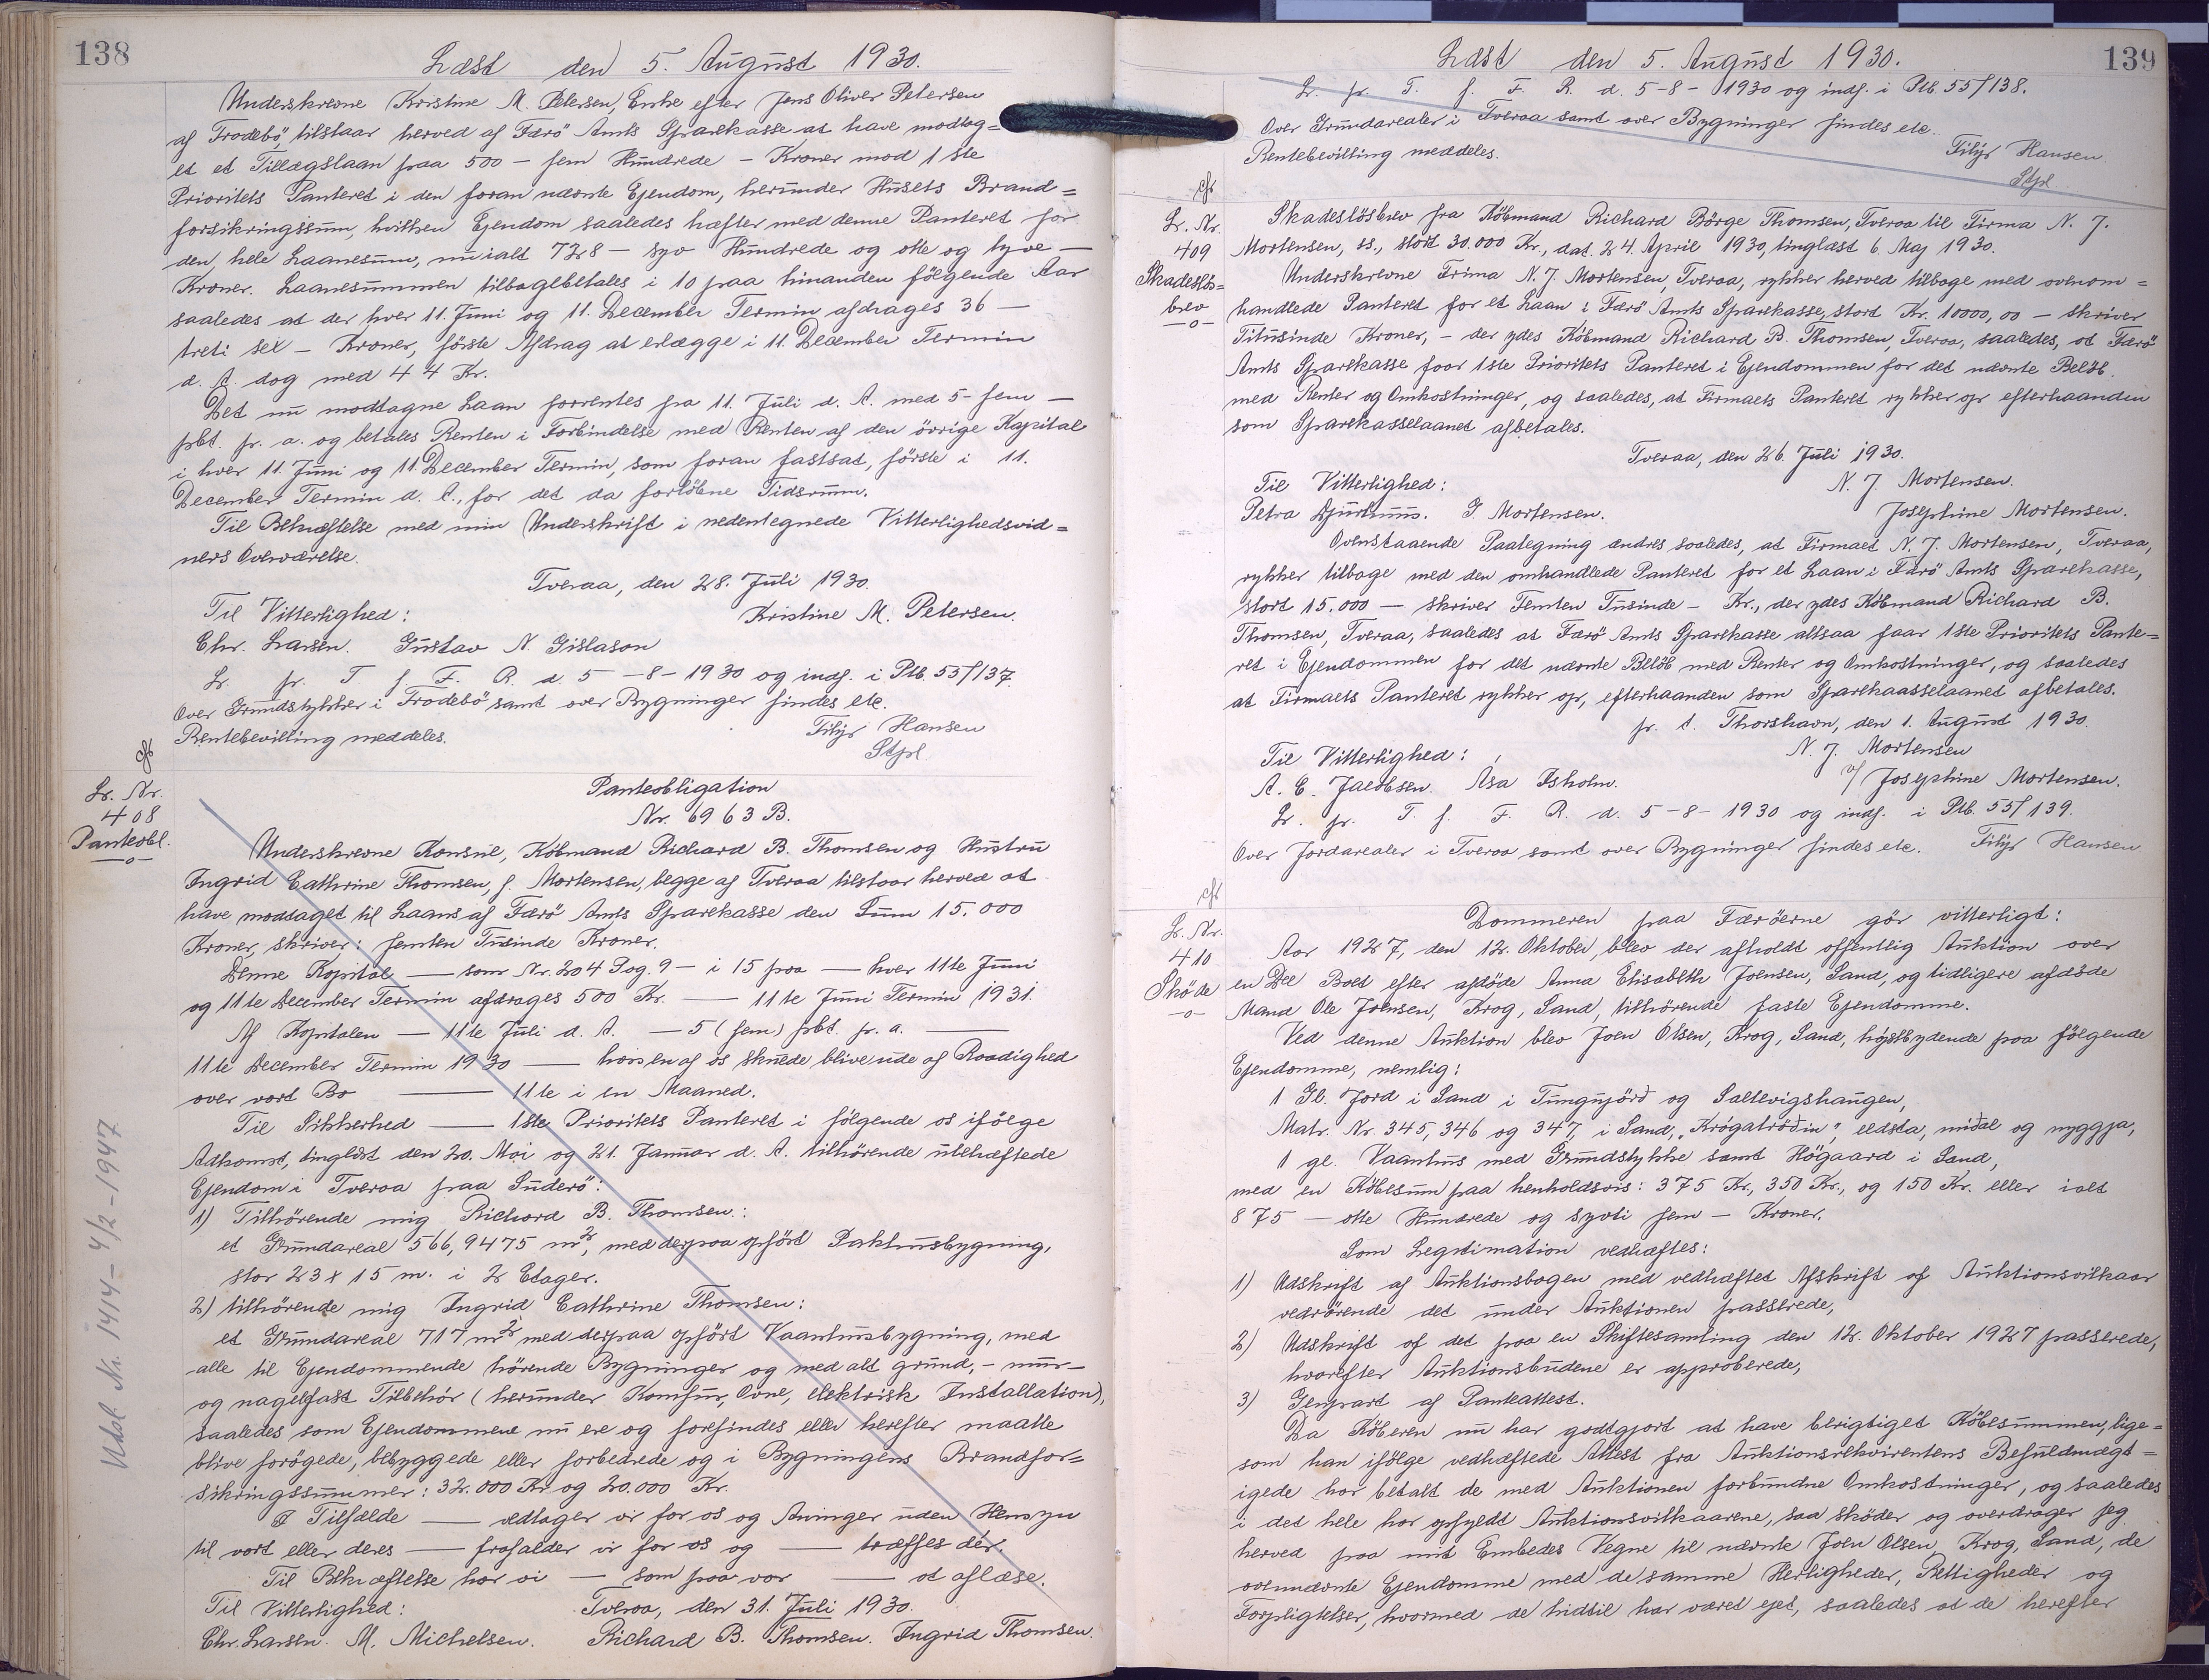 138
Læst den 5. August 1930.
Underskrevne Kristine M. Petersen, Enke efter Jens Oliver Petersen
af Frodebö, tilstaar herved af Færö Amts Sparekasse at have modtag=
et et Tillægslaan paa 500 - fem Hundrede - Kroner mod 1ste
Prioritets Panteret i den foran nævnte Ejendom, herunder Husets Brand=
forsikringssum, hvilken Ejendom saaledes hæfter med denne Panteret for
den hele Laanesum, nu ialt 728 - syv Hundrede og otte og tyve -
Kroner. Laanesummen tilbagebetales i 10 paa hinanden følgende Aar
saaledes at der hver 11. Juni og 11. December Termin afdrages 36 -
treti sex - Kroner, første Afdrag at erlægge i 11. December Termin
d. A. dog med 44 Kr.
Det nu modtagne Laan forrentes fra 11. Juli d. A. med 5- fem -
pct. pr. a. og betales Renten i Forbindelse med Renten af den örrige Kapital
i hver 11. Juni og 11. December Termin, som foran fastsat, første i 11.
December Termin d. A., for det da forløbne Tidsrum.
Til Bekræftelse med min Underskrift i nedentegnede Vitterlighedsvid=
ners Overværelse.
Tveraa, den 28. Juli 1930.
Til Vitterlighed:
Kristine M. Petersen.
Chr. Larsen. Gustav N. Gislason
Lr. pr. T. f. F. R. d. 5-8-1930 og indf. i Ptb. 55f137.
Over Grundstykker i Frodebö samt over Bygninger findes etc.
Rentebevilling meddeles.
Filip Hansen
Stpl.
cft
Lr. Nr.
408
Panteobl.
-o-
Panteobligation
Nr. 6963 B.
Underskrevne Konsul, Köbmand Richard B. Thomsen og Hustru
Ingrid Cathrine Thomsen, f. Mortensen, begge af Tveraa tilstaar herved at
have modtaget til Laans af Færö Amts Sparekasse den Sum 15.000
Kroner, skriver: femten Tusinde Kroner.
Denne Kapital — som Nr. 204 Pag. 9 - i 15 paa — hver 11te Juni
og 11te December Termin afdrages 500 Kr. — 11te Juni Termin 1931.
Af Kapitalen — 11te Juli d. A. — 5 (fem) pct. pr. a. —
11te December Termin 1930 — hvis en af os skulde blive ude af Raadighed
over vort Bo — 11te i en Maaned.
Til Sikkerhed — 1ste Prioritets Panteret i følgende os ifölge
Adkomst, tinglæst den 20. Mai og 21. Januar d. A. tilhörende ubehæftede
Ejendom i Tveraa paa Suderö:
1) Tilhörende mig Richard B. Thomsen:
et Grundareal 566,9475 m², med derpaa opfört Pakhusbygning,
stor 23 x 15 m. i 2 Etager.
2) tilhörende mig Ingrid Cathrine Thomsen:
et Grundareal 717 m² med derpaa opfört Vaanhusbygning, med
alle til Ejendommende hörende Bygninger og med alt grund,- mur-
og nagelfast Tilbehör (herunder Komfur, Ovne, elektrisk Installation),
saaledes som Ejendommene nu ere og forefindes eller herefter maatte
blive forögede, bebyggede eller forbedrede og i Bygningens Brandfor=
sikringssummer: 32.000 Kr og 20.000 Kr.
I Tilfælde — vedtager vi for os og Arvinger uden Hensyn
til vort eller deres — frafalder vi for os og — træffes dér.
Til Bekræftelse har vi — som paa vor — at aflæse.
Til Vitterlighed:
Tveraa, den 31. Juli 1930.
Chr. Larsen. M. Michelsen.
Richard B. Thomsen. Ingrid Thomsen.
Udsl. Nr. 1414 - 4/2-1947
139
Læst den 5. August 1930.
Lr. pr. T. f. F. R. d. 5-8-1930 og indf. i Ptb. 55f138.
Over Grundarealer i Tveraa samt over Bygninger findes etc.
Rentebevilling meddeles.
Filip Hansen
Stpl
cft
Lr. Nr.
409
Skadeslös=
brev
-o-
Skadeslösbrev fra Köbmand Richard Börge Thomsen, Tveraa til Firma N. J.
Mortensen, ss., stort 30.000 Kr., dat. 24. April 1930, tinglæst 6. Maj 1930.
Underskrevne Frima N. J. Mortensen, Tveraa, rykker herved tilbage med ovenom=
handlede Panteret for et Laan i Færö Amts Sparekasse, stort Kr. 10000,00 - skriver
Titusinde Kroner, - der ydes Köbmand Richard B. Thomsen, Tveraa, saaledes, at Færö
Amts Sparekasse faar 1ste Prioritets Panteret i Ejendommen for det nævnte Belöb
med Renter og Omkostninger, og saaledes, at Firmaets Panteret rykker op efterhaanden
som Sparekasselaanet afbetales.
Tveraa, den 26. Juli 1930.
Til Vitterlighed:
N. J. Mortensen.
Petra Djurhuus. J. Mortensen.
Josephine Mortensen.
Ovenstaaende Paategning ændres saaledes, at Firmaet N. J. Mortensen, Tveraa,
rykker tilbage med den omhandlede Panteret for et Laan i Færö Amts Sparekasse,
stort 15.000 - skriver Femten Tusinde - Kr., der ydes Köbmand Richard B.
Thomsen, Tveraa, saaledes at Færö Amts Sparekasse altsaa faar 1ste Prioritets Pante=
ret i Ejendommen for det nævnte Belöb med Renter og Omkostninger, og saaledes
at Firmaets Panteret rykker op, efterhaanden som Sparekaasselaanet afbetales.
pr. t. Thorshavn, den 1. August 1930.
Til Vitterlighed:
N. J. Mortensen
A. E. Jacobsen. Asa Isholm.
v/ Josephine Mortensen.
Lr. pr. T. f. F. R. d. 5-8-1930 og indf. i Ptb. 55f139.
Over Jordarealer i Tveraa samt over Bygninger findes etc.
Filip Hansen
cft
Lr. Nr.
410
Sköde
-o-
Dommeren paa Færöerne gör vitterligt:
Aar 1927, den 12. Oktober, blev der afholdt offentlig Auktion over
en Del Boet efter afdöde Anna Elisabeth Joensen, Sand, og tidligere afdöde
Mand Ole Joensen, Krog, Sand, tilhörende faste Ejendomme.
Ved denne Auktion blev Joen Olsen, Krog, Sand, højstbydende paa følgende
Ejendomme, nemlig:
1 Gl. Jord i Sand i Tungujörð og Saltevigshaugen,
Matr. Nr. 345, 346 og 347, i Sand, "Krógatröðin", eldsta, miðal og nyggja,
1 gl. Vaanhus med Grundstykke samt Högaard i Sand,
med en Köbesum paa henholdsvis: 375 Kr., 350 Kr., og 150 Kr. eller ialt
875 - otte Hundrede og syvti fem - Kroner.
Som Legitimation vedhæftes:
1) Udskrift af Auktionsbogen med vedhæftet Afskrift af Auktionsvilkaar
vedrörende det under Auktionen passerede,
2) Udskrift af det paa en Skiftesamling den 12. Oktober 1927 passerede,
hvorefter Auktionsbudene er approberede,
3) Genpart af Panteattest.
Da Köberen nu har godtgjort at have berigtiget Köbesummen, lige=
som han ifölge vedhæftede Attest fra Auktionsrekvirentens Befuldmægt=
igede har betalt de med Auktionen forbundne Omkostninger, og saaledes
i det hele har opfyldt Auktionsvilkaarene, saa sköder og overdrager jeg
herved paa mit Embedes Vegne til nævnte Joen Olsen, Krog, Sand, de
ovennævnte Ejendomme med de samme Herligheder, Rettigheder og
Forpligtelser, hvormed de hidtil har været ejet, saaledes at de herefter